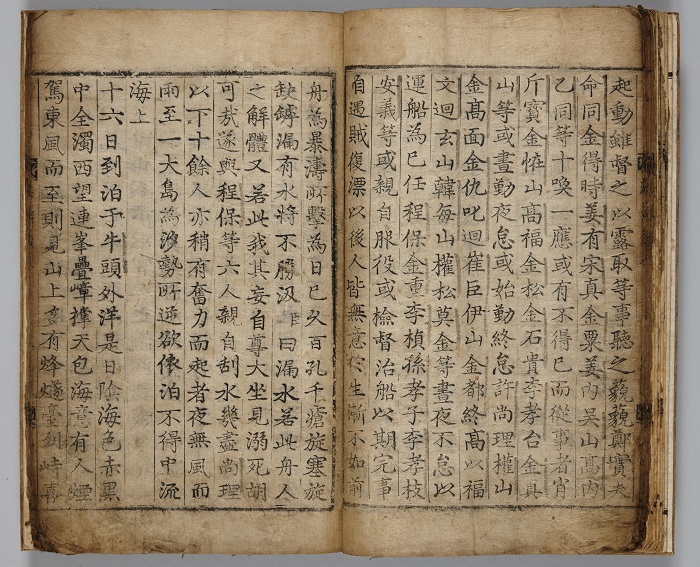 起動雖督之以露取等事聽之藐藐鄭實夫
命同金得時姜有宋真金粟姜內吳山高內
乙同等十喚一應或有不得已而從事者肖
斤寶金怪山高福金松金石貴李孝台金真
山等或晝勤夜怠或始勤終怠許尚理權山
金高面金仇叱迴崔巨伊山金都終高以福
文迴玄山韓每山權松莫金等晝夜不怠以
運船為已任程保金重李楨孫孝子李孝枝
安義等或親自服役或檢督治船以期完事
自遇賊復漂以後人皆無意於生漸不如前
舟為暴濤所擊為日已久百孔千瘡旋塞旋
缺罅漏有水將不勝汲臣曰漏水若此舟人
之解體又若此我其妄自尊大坐見溺死胡
可哉遂與程保等六人親自刮水幾盡尚理
以下十餘人亦稍有奮力而起者夜無風而
雨至一大島為汐勢所逆欲泊不得中流
海上
十六日到泊于牛頭外洋是日陰海色赤黑
中全濁西望連峯疊嶂撑天包海意有人煙
駕東風而至則見山上多有烽燧臺列峙喜